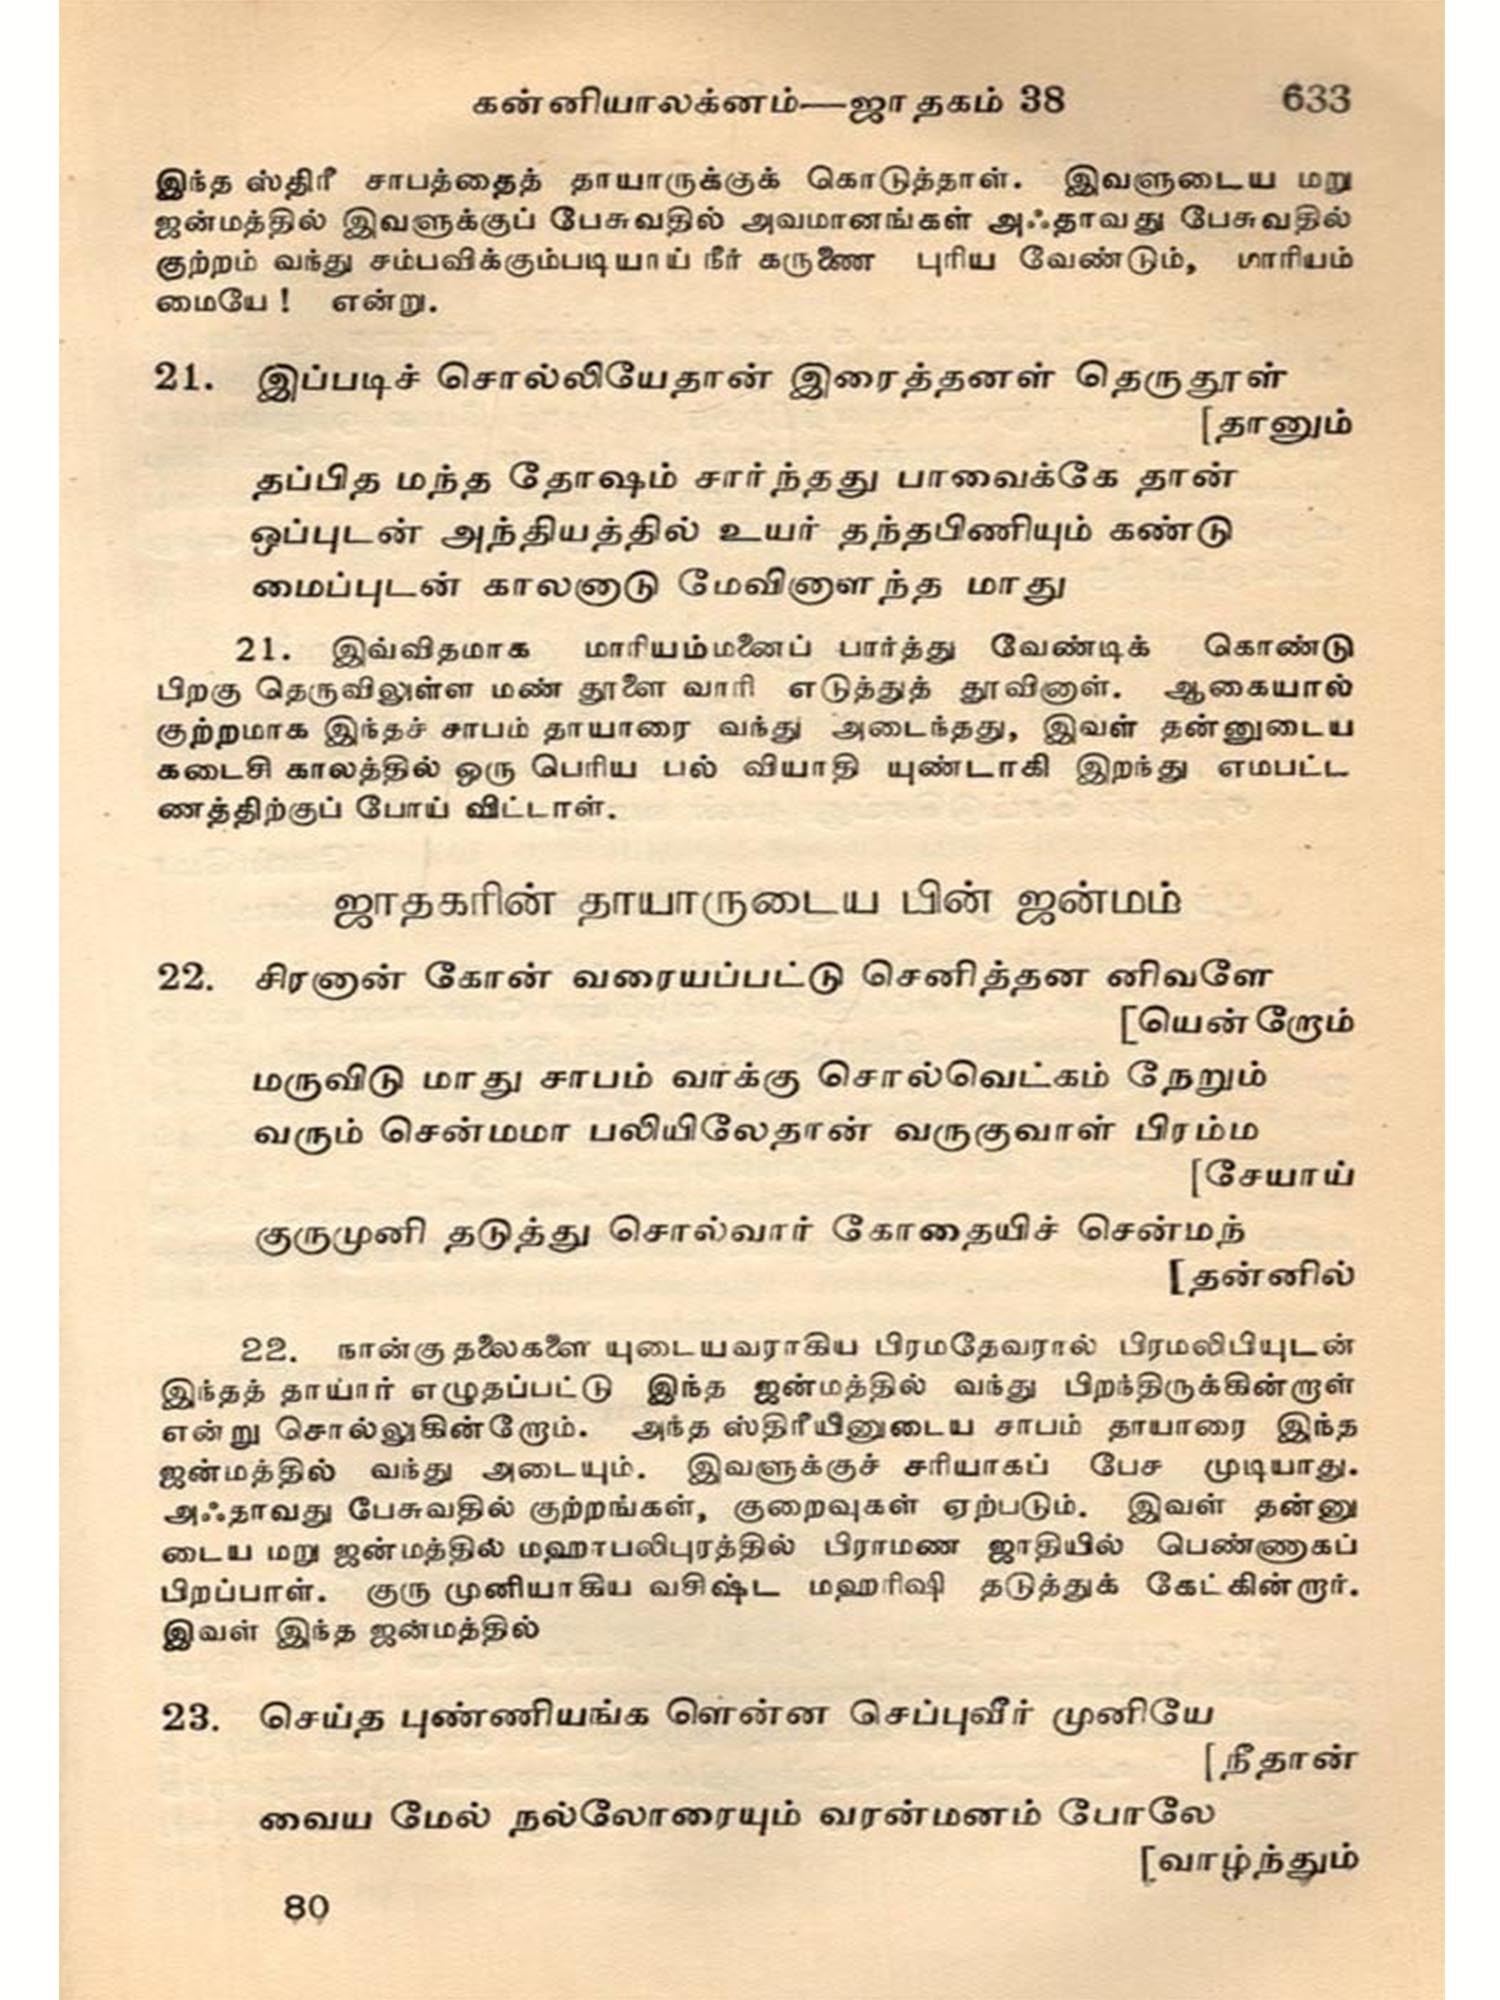 கன்னியாலக்னம்—ஜாதகம் 38 633
இந்த ஸ்திரீ சாபத்தைத் தாயாருக்குக் கொடுத்தாள். இவளுடைய மறு
ஜன்மத்தில் இவளுக்குப் பேசுவதில் அவமானங்கள் அஃதாவது பேசுவதில்
குற்றம் வந்து சம்பவிக்கும்படியாய் நீர் கருணை புரிய வேண்டும், மாரியம்
மையே! என்று.
21. இப்படிச் சொல்லியேதான் இரைத்தனள் தெருதூள்
[தானும்
தப்பித மந்த தோஷம் சார்ந்தது பாவைக்கே தான்
ஒப்புடன் அந்தியத்தில் உயர் தந்தபிணியும் கண்டு
மைப்புடன் காலனாடு மேவினாளந்த மாது
21. இவ்விதமாக மாரியம்மனைப் பார்த்து வேண்டிக் கொண்டு
பிறகு தெருவிலுள்ள மண் தூளை வாரி எடுத்துத் தூவினாள். ஆகையால்
குற்றமாக இந்தச் சாபம் தாயாரை வந்து அடைந்தது, இவள் தன்னுடைய
கடைசி காலத்தில் ஒரு பெரிய பல் வியாதி யுண்டாகி இறந்து எமபட்ட
ணத்திற்குப் போய் விட்டாள்.
ஜாதகரின் தாயாருடைய பின் ஜன்மம்
22. சிரனான் கோன் வரையப்பட்டு செனித்தன னிவளே
[யென்றோம்
மருவிடு மாது சாபம் வாக்கு சொல்வெட்கம் நேறும்
வரும் சென்மமா பலியிலேதான் வருகுவாள் பிரம்ம
[சேயாய்
குருமுனி தடுத்து சொல்வார் கோதையிச் சென்மந்
[தன்னில்
22. நான்கு தலைகளை யுடையவராகிய பிரமதேவரால் பிரமலிபியுடன்
இந்தத் தாயார் எழுதப்பட்டு இந்த ஜன்மத்தில் வந்து பிறந்திருக்கின்றாள்
என்று சொல்லுகின்றோம். அந்த ஸ்திரீயினுடைய சாபம் தாயாரை இந்த
ஜன்மத்தில் வந்து அடையும். இவளுக்குச் சரியாகப் பேச முடியாது.
அஃதாவது பேசுவதில் குற்றங்கள், குறைவுகள் ஏற்படும். இவள் தன்னு
டைய மறு ஜன்மத்தில் மஹாபலிபுரத்தில் பிராமண ஜாதியில் பெண்ணாகப்
பிறப்பாள். குரு முனியாகிய வசிஷ்ட மஹரிஷி தடுத்துக் கேட்கின்றார்.
இவள் இந்த ஜன்மத்தில்
23. செய்த புண்ணியங்க ளென்ன செப்புவீர் முனியே
[நீதான்
வைய மேல் நல்லோரையும் வரன்மனம் போலே
[வாழ்ந்தும்
80